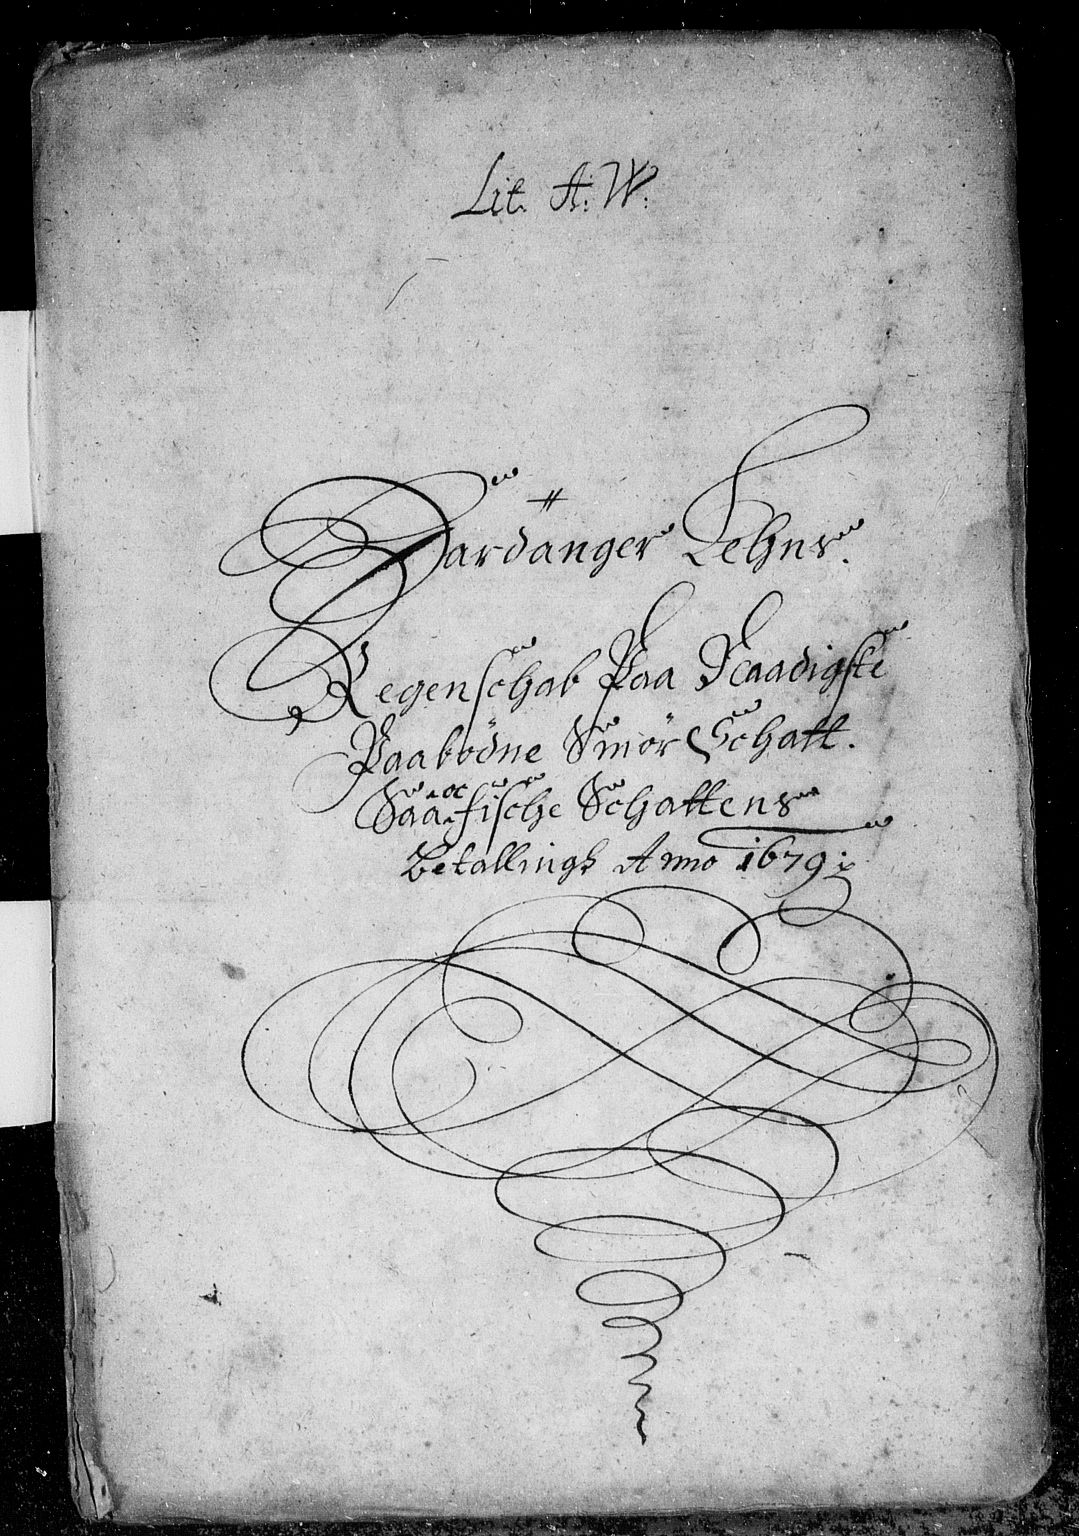 Lit. A: W:
Hardanger Lehns.
Regenschab Paa Naadigste
Paabodne Smör Schatt.
Saa oc fische Schattens
Betallings Anno 1679: